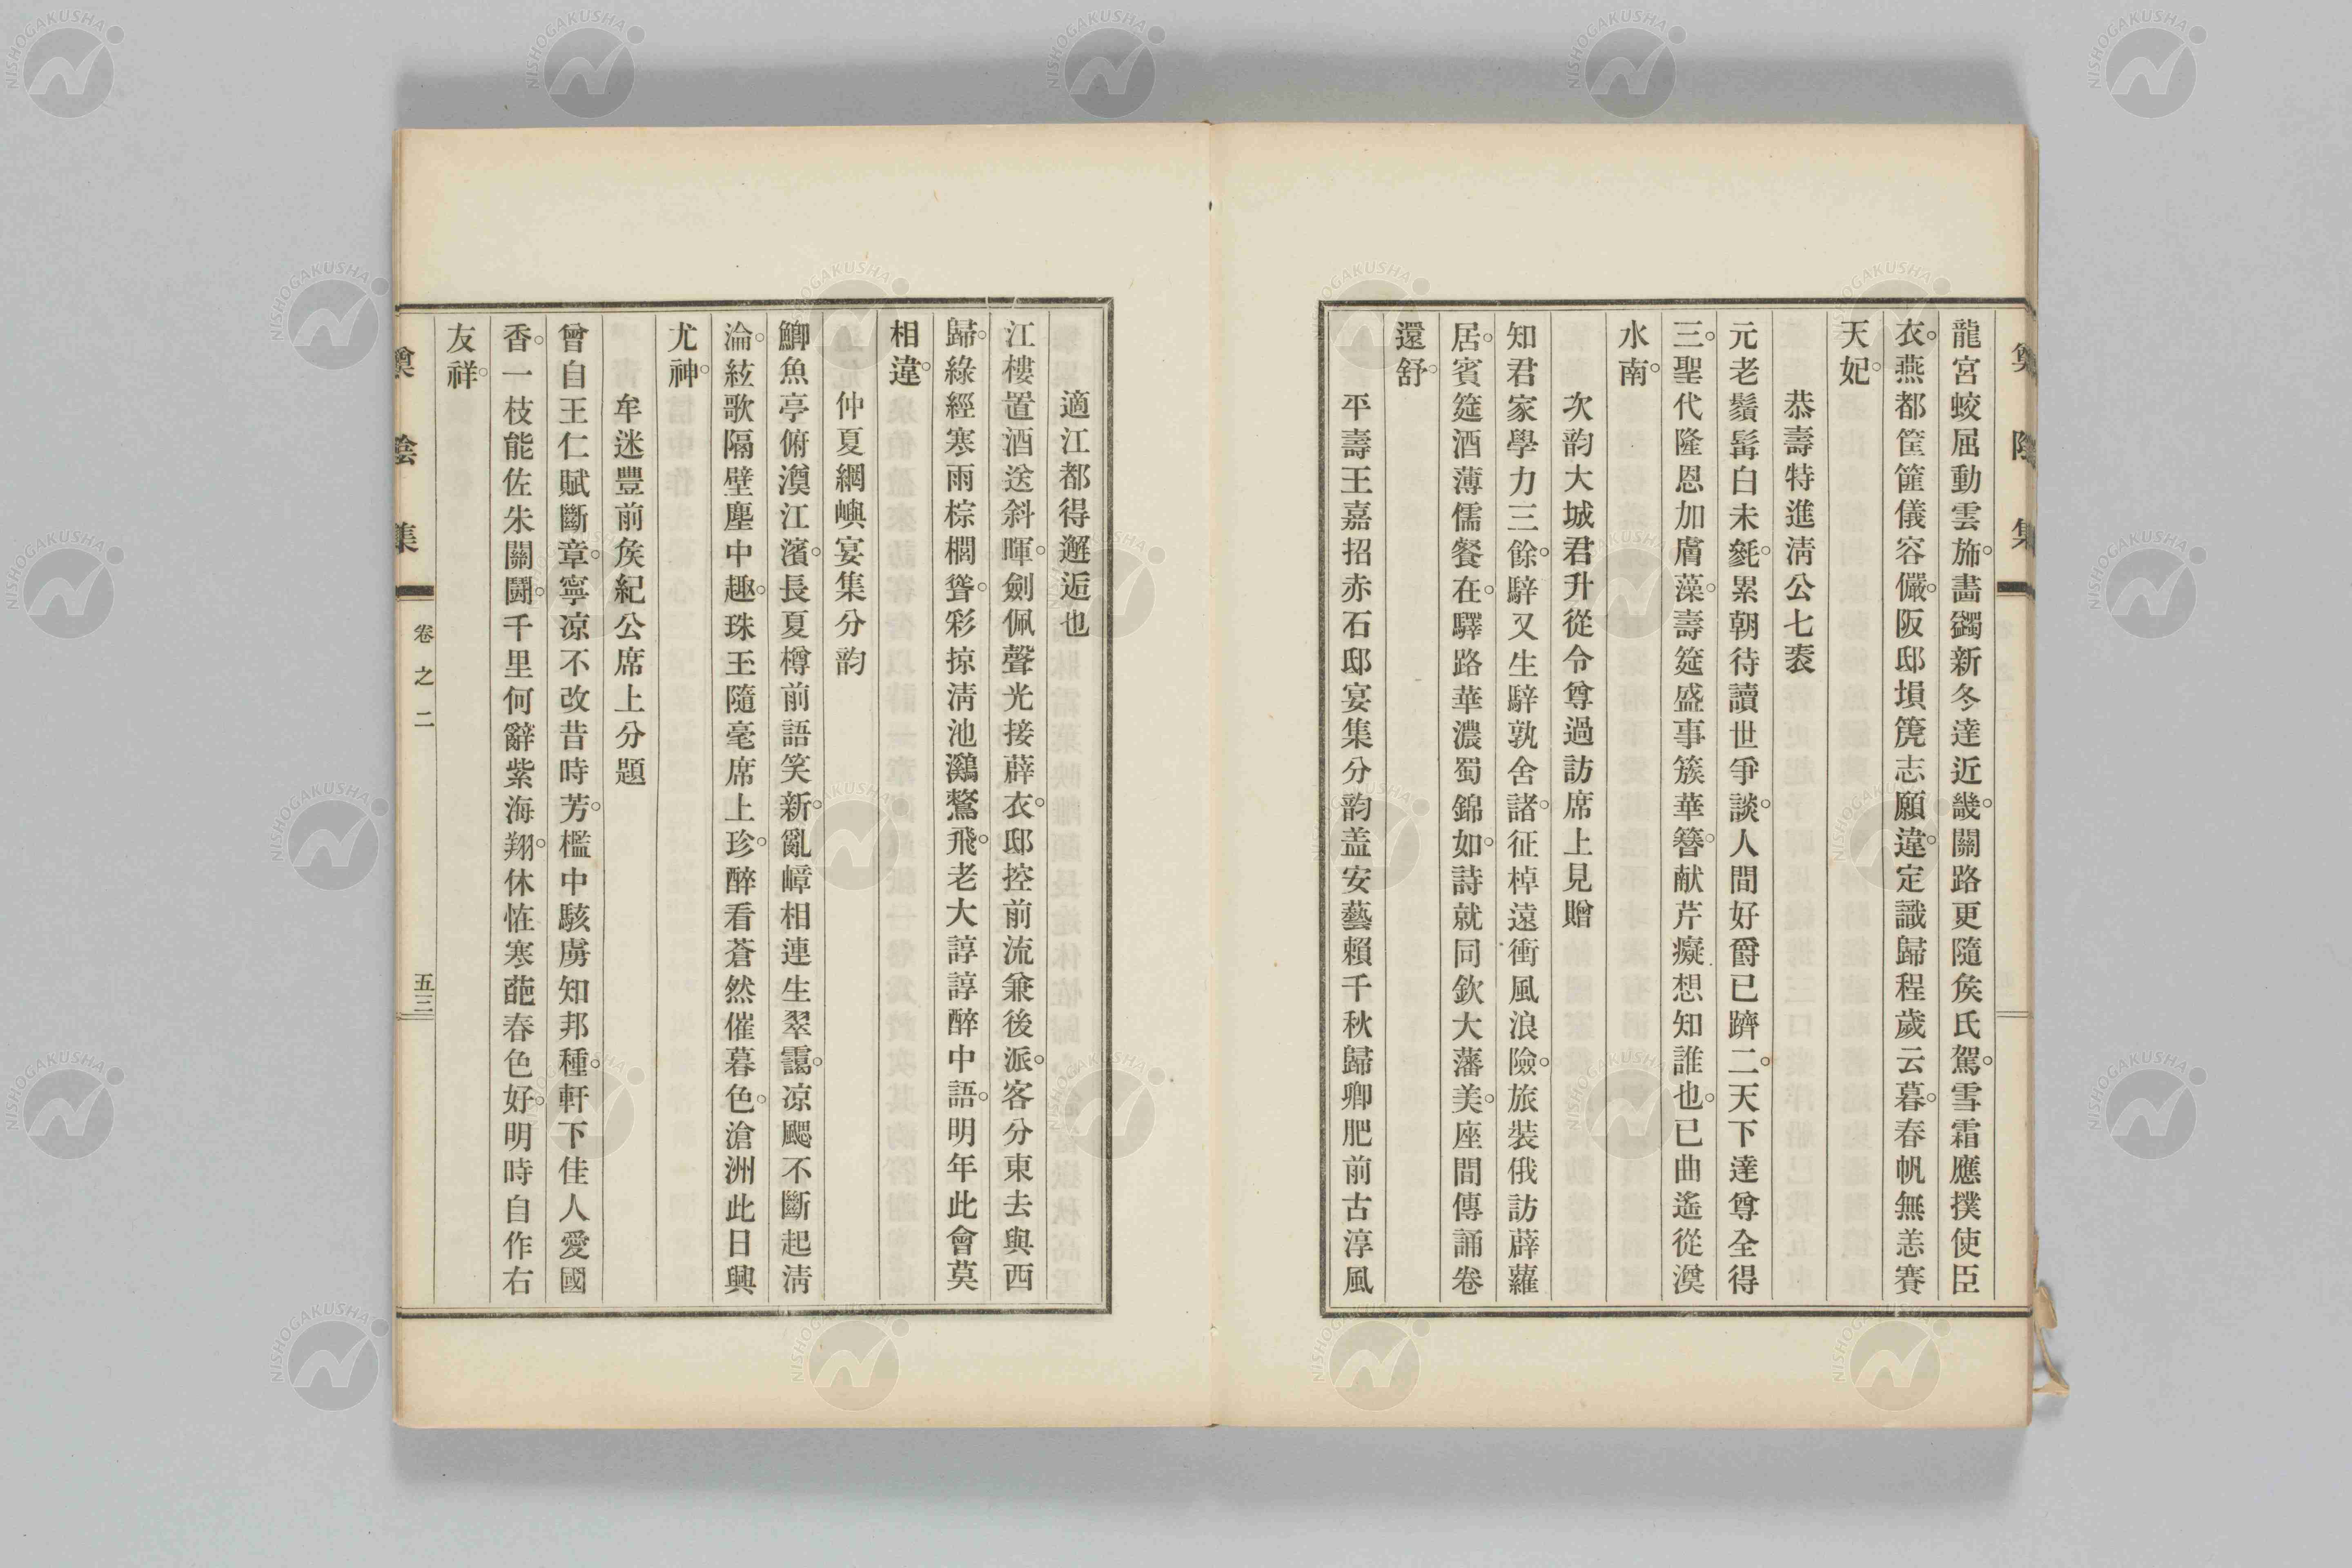 龍宮蛟屈動雲旆。畵鷁新冬達近畿。關路更隨矦氏駕。雪霜應撲使臣
衣。燕都筐篚儀容儼。阪邸塤箎志願違。定識歸程歲云暮。春帆無恙賽
天妃。
恭壽特進淸公七袠
元老鬚髯白未毿。累朝待讀世爭談。人間好爵已躋二。天下達尊全得
三。聖代隆恩加膚藻。壽筵盛事簇華簪。献芹癡想知誰也。已曲遙從澳
水南。
次韵大城君升從令尊過訪席上見贈
知君家學力三餘。辤又生辤孰舍諸。征棹遠衝風浪險。旅裝俄訪薜蘿
居。賓筵酒薄儒餐在。驛路華濃蜀錦如。詩就同欽大藩美。座間傳誦卷
還舒。
平壽王嘉招赤石邸宴集分韵盖安藝賴千秋歸卿肥前古淳風
適江都得邂逅也
江樓置酒送斜暉。劍佩聲光接薜衣。邸控前流兼後派。客分東去與西
歸。綠經寒雨棕櫚聳。彩掠淸池鸂鶒飛。老大諄諄醉中語。明年此會莫
相違。
仲夏網嶼宴集分韵
鯽魚亭俯澳江濱。長夏樽前語笑新。亂嶂相連生翠靄。凉颸不斷起淸
淪。絃歌隔壁塵中趣。珠玉隨毫席上珍。醉看蒼然催暮色。滄洲此日興
尤神。
牟迷豐前矦紀公席上分題
曾自王仁賦斷章。寧凉不改昔時芳。檻中駭虜知邦種。軒下佳人愛國
香。一枝能佐朱闌鬪。千里何辭紫海翔。休恠寒葩春色好。明時自作右
友祥。
卷之二
五三